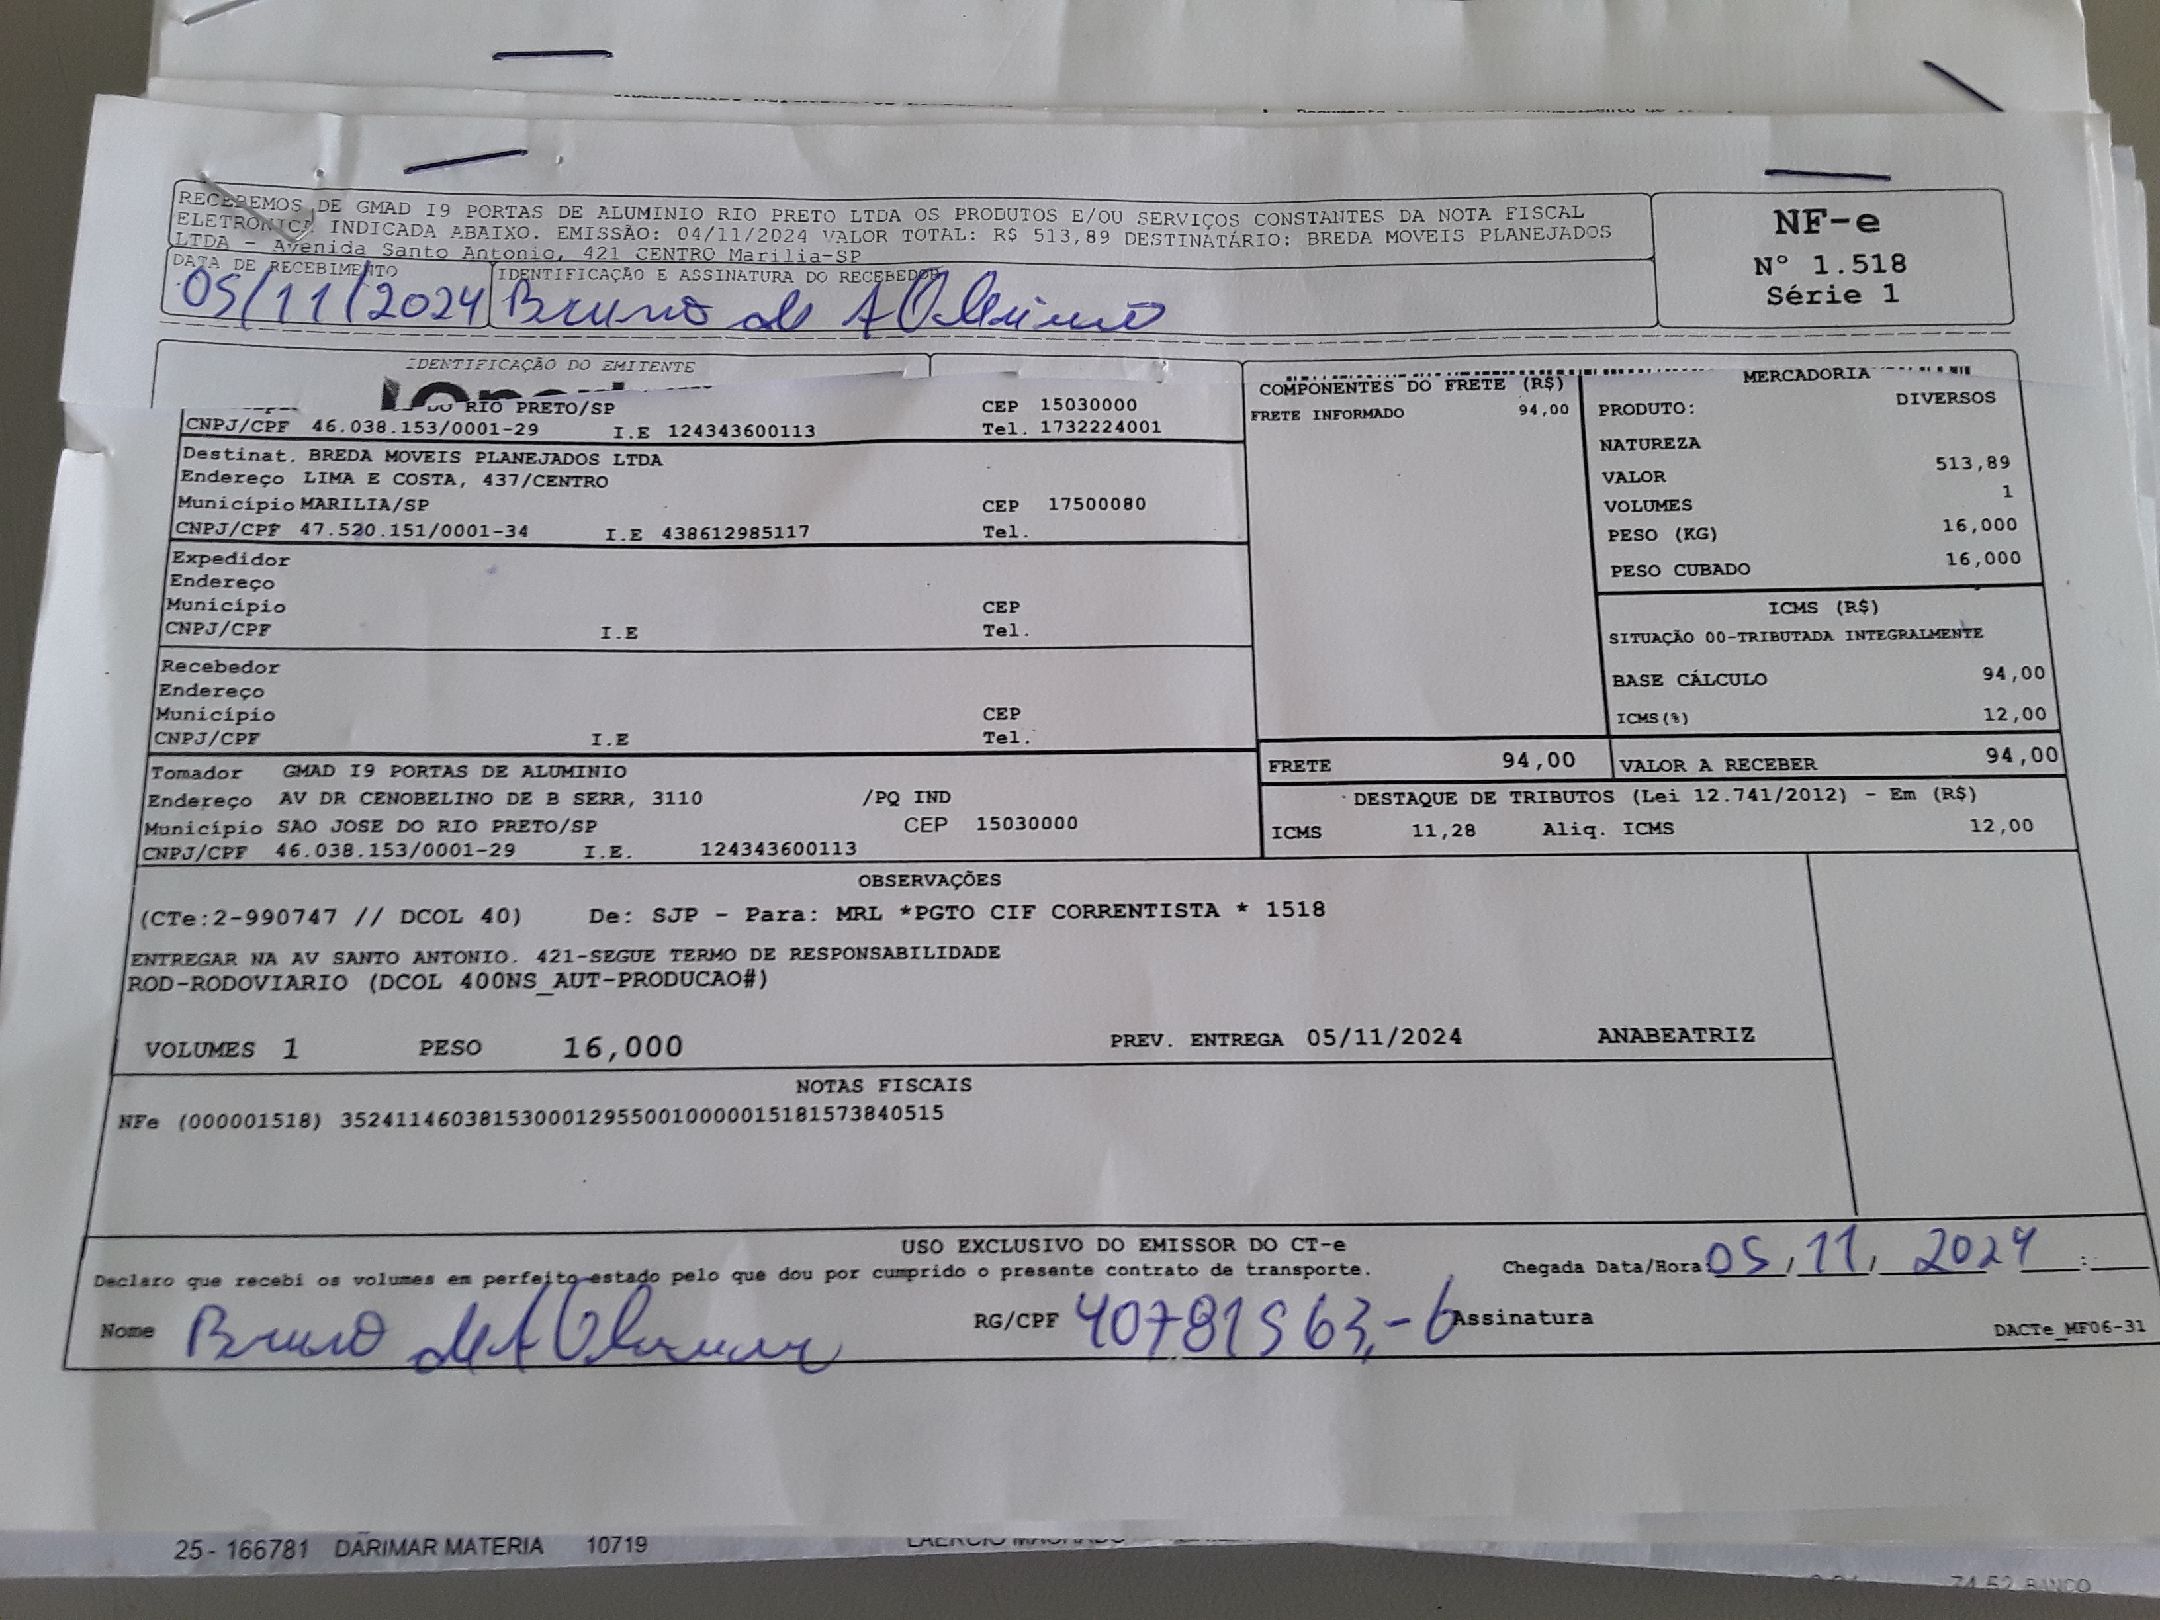 RECEBEMOS DE GMAD I9 PORTAS DE ALUMINIO RIO PRETO LTDA OS PRODUTOS E/OU SERVIÇOS CONSTANTES DA NOTA FISCAL
ELETRÔNICA INDICADA ABAIXO. EMISSÃO: 04/11/2024 VALOR TOTAL: R$ 513,89 DESTINATÁRIO: BREDA MOVEIS PLANEJADOS
LTDA - Avenida Santo Antonio, 421 CENTRO Marilia-SP
NF-e
Nº 1.518
Série 1
DATA DE RECEBIMENTO
05/11/2024
IDENTIFICAÇÃO E ASSINATURA DO RECEBEDOR
Bruno de A
IDENTIFICAÇÃO DO EMITENTE
DO RIO PRETO/SP CEP 15030000
CNPJ/CPF 46.038.153/0001-29 I.E 124343600113 Tel. 1732224001
Destinat. BREDA MOVEIS PLANEJADOS LTDA
Endereço LIMA E COSTA, 437/CENTRO
Município MARILIA/SP CEP 17500080
CNPJ/CPF 47.520.151/0001-34 I.E 438612985117 Tel.
Expedidor
Endereço
Município CEP
CNPJ/CPF I.E Tel.
Recebedor
Endereço
Município CEP
CNPJ/CPF I.E Tel.
Tomador GMAD I9 PORTAS DE ALUMINIO
Endereço AV DR CENOBELINO DE B SERR, 3110 /PQ IND
Município SAO JOSE DO RIO PRETO/SP CEP 15030000
CNPJ/CPF 46.038.153/0001-29 I.E. 124343600113
COMPONENTES DO FRETE (R$)
FRETE INFORMADO 94,00
MERCADORIA
PRODUTO: DIVERSOS
NATUREZA
VALOR 513,89
VOLUMES 1
PESO (KG) 16,000
PESO CUBADO 16,000
ICMS (R$)
SITUAÇÃO 00-TRIBUTADA INTEGRALMENTE
BASE CÁLCULO 94,00
ICMS(%) 12,00
FRETE 94,00 VALOR A RECEBER 94,00
DESTAQUE DE TRIBUTOS (Lei 12.741/2012) - Em (R$)
ICMS 11,28 Aliq. ICMS 12,00
OBSERVAÇÕES
(CTe:2-990747 // DCOL 40) De: SJP - Para: MRL *PGTO CIF CORRENTISTA * 1518
ENTREGAR NA AV SANTO ANTONIO. 421-SEGUE TERMO DE RESPONSABILIDADE
ROD-RODOVIARIO (DCOL 400NS_AUT-PRODUCAO#)
VOLUMES 1 PESO 16,000 PREV. ENTREGA 05/11/2024 ANABEATRIZ
NOTAS FISCAIS
NFe (000001518) 35241146038153000129550010000015181573840515
USO EXCLUSIVO DO EMISSOR DO CT-e
Declaro que recebi os volumes em perfeito estado pelo que dou por cumprido o presente contrato de transporte.
Chegada Data/Hora 05/11/2024 :
Nome Bruno de A RG/CPF 40781563-6 Assinatura
DACTe_MF06-31
25 - 166781 DARIMAR MATERIA 10719